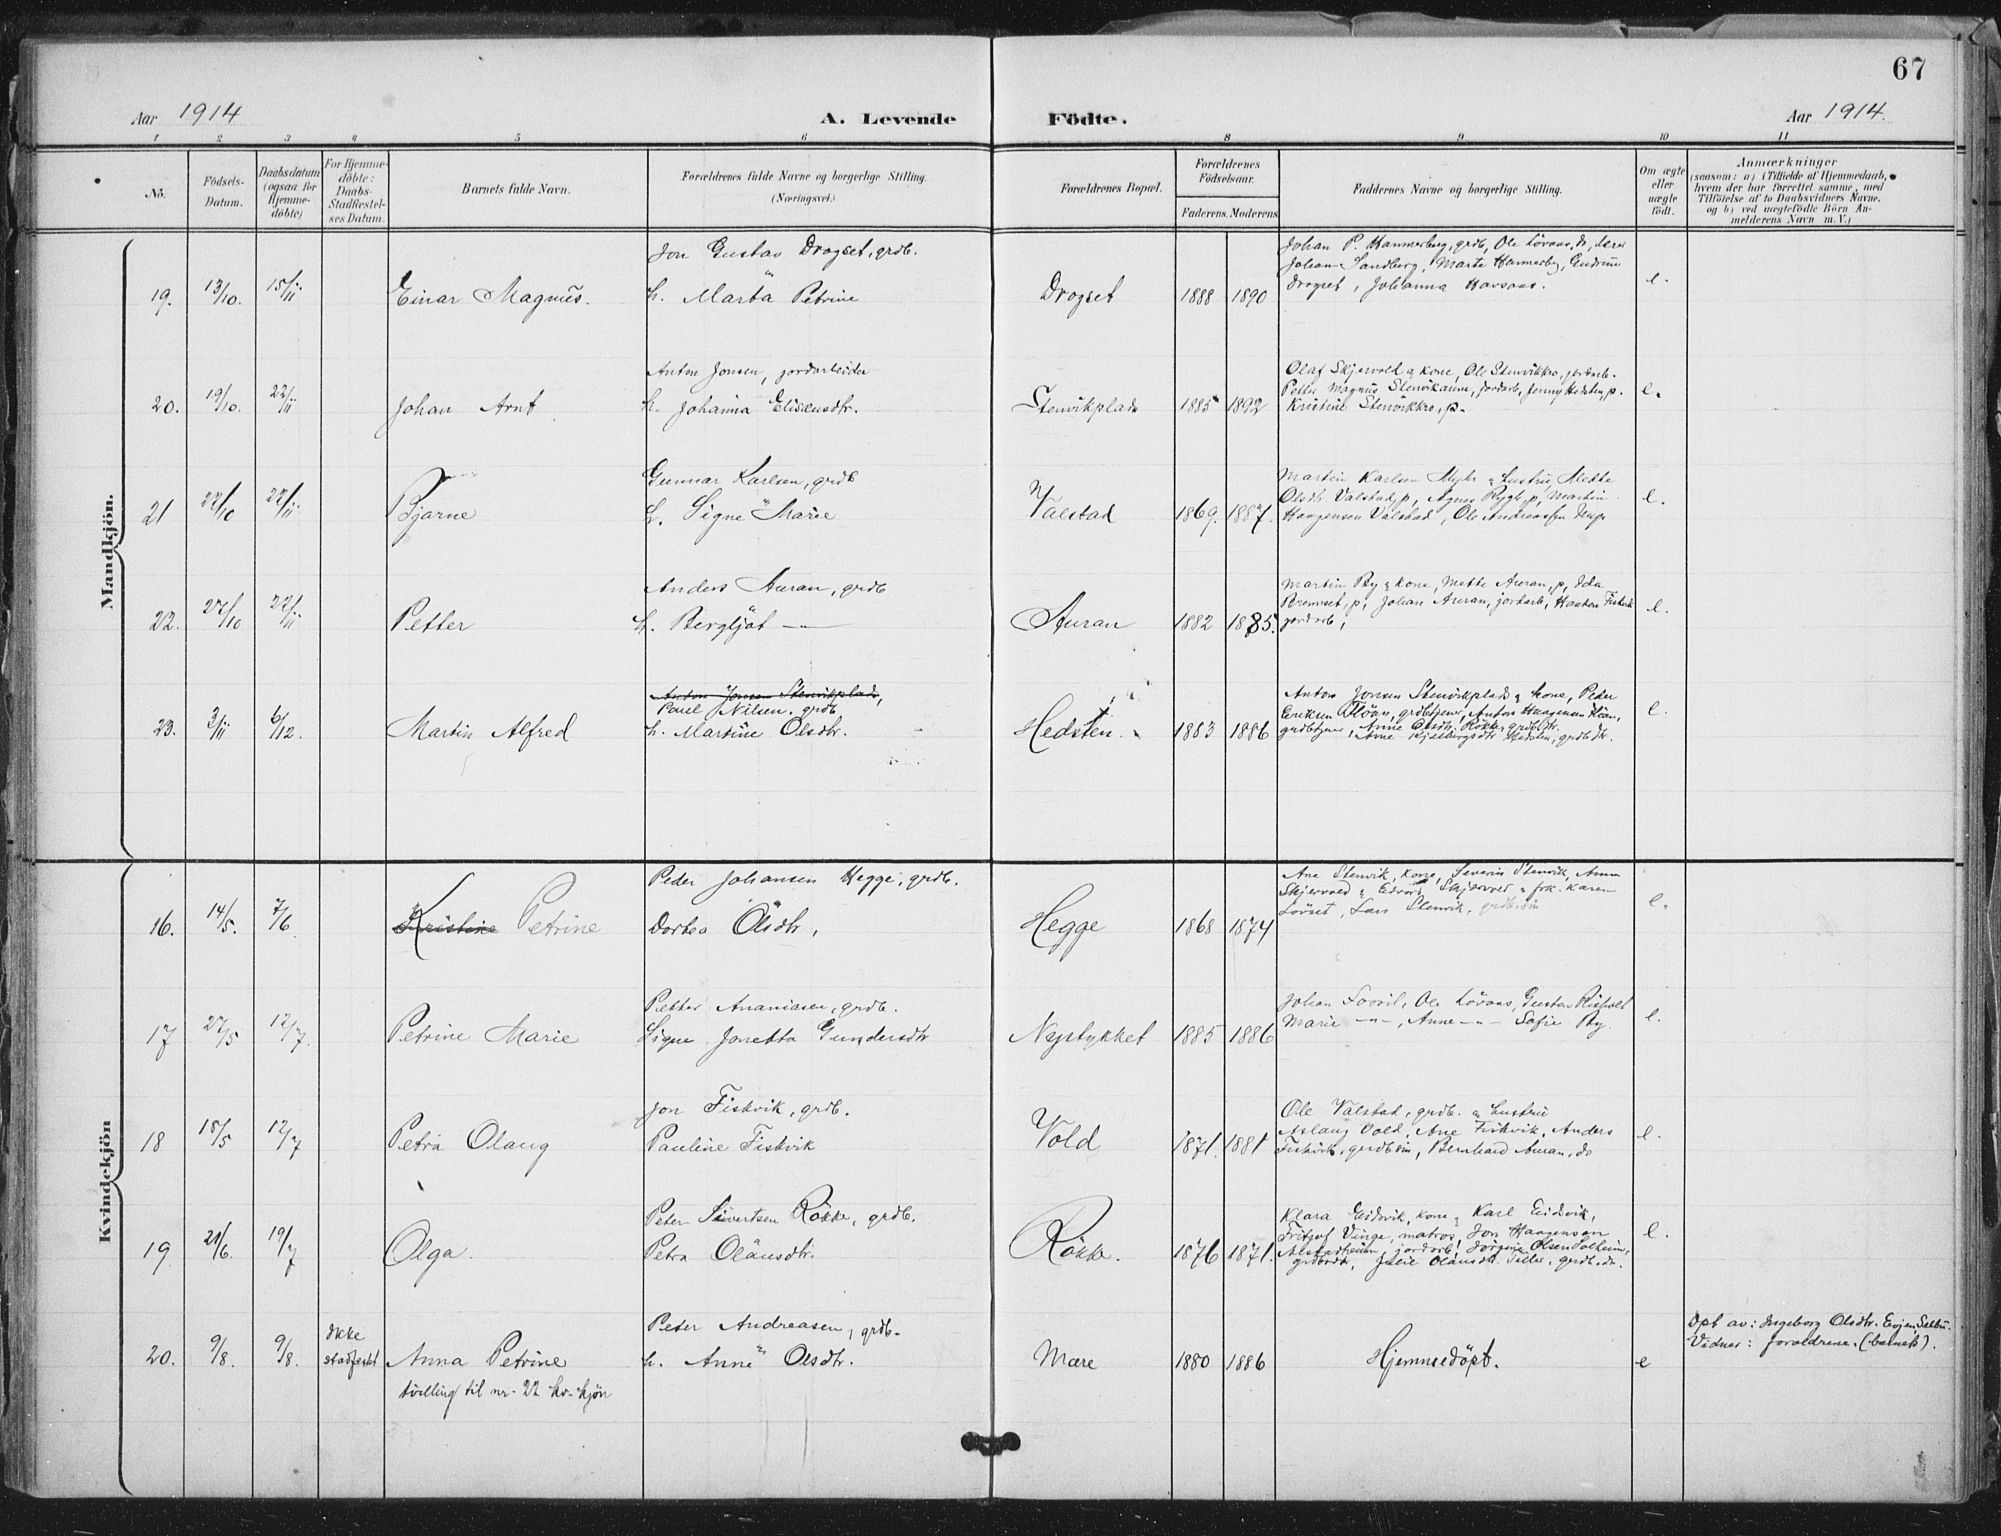 67
Aar 1914
A. Levende Födte.
Aar 1914.
1 2 3 4 5 6 8 9 10 11
No.
Födsels-Datum.
Daabsdatum (ogsaa for Hjemme-döbte)
For Hjemme-döbte: Daabs-Stadfestel-ses Datum.
Barnets fulde Navn.
Forældrenes fulde Navne og borgerlige Stilling.
(Næringsvei.)
Forældrenes Bopæl.
Forældrenes Födselsaar.
Faderens. Moderens
Faddernes Navne og borgerlige Stilling.
Om ægte eller uægte födt.
Anmærkninger
(saasom: a) i Tilfælde af Hjemmedaab,
hvem der har forrettet samme, med
Tilföielse af to Daabsvidners Navne,
og b) ved uægtefödte Börn An-
melderens Navn m. V.)
Mandkjön.
Jon Gustav Drogset, grdb.
19. 13/10. 15/11 Einar Magnus. h. Marta Petrine Drogset 1888 1890
Johan P. Hammerberg, grdb, Ole Lövaas, do, lærer
Johan Sandberg, Marta Hammerberg, Gudrun
Drogset, Johanna Havsaas. e.
Anton Jonsen, jordarbeider
20. 19/10. 22/11 Johan Arnt h. Johanna Elisæusdtr. Stenvikplads 1885 1892
Olaf Skjervold & kone, Ole Stenvikkro, jordarb.
Petter Magnus Stenvikaune, jordarb, Jenny Hedsten, p.
Kristine Stenvikkro, p. e.
Gunnar Karlsen, grdb
21 22/10 22/11 Bjarne h. Signe Marie Valstad 1869. 1887.
Martin Karlsen Myhr & hustru, Mette
Olsdtr. Valstad, p, Agnes Rygh, p, Martin
Haagensen Valstad, Ole Andreassen e.
Anders Auran, grdb
22. 27/10 22/11 Petter h. Bergljot —"— Auran 1882 1885.
Martin By & kone, Mette Auran, p, Ida
Bremset, p, Johan Auran, jordarb, Haakon Fiskvik
jordarb, e.
Anton Jonsen Stenvikplads,
Paul Nilsen, grdb
23. 3/11 6/12. Martin Alfred h. Martine Olsdtr. Hedsten. 1883 1886
Anton Jonsen Stenvikplads & kone, Peder
Eriksen Flöan, grdbtjener, Anton Haagensen Flöan,
grdbtjener, Anne Olsdtr. Rökke, grdb.dtr.
Ane Hedsten, grdb.dtr. e.
Kvindekjön
Peder Johansen Hegge, grdb.
16. 14/5. 7/6 Kristine Petrine Dortea Olsdtr, Hegge 1868 1874
Ane Stenvik, kone, Severin Stenvik, Anna
Skjervold & Edvard Skjervold & frk. Karen
Lövset, Lars Stenvik, grdb.sön e.
Petter Ananiasen, grdb.
17 27/5 12/7. Petrine Marie Signe Jonetta Gundersdtr Nystykket 1885 1886
Johan Ole Lövaas, Gustav
Marie —"—, Anne —"— Sofie By. e.
Jon Fiskvik, grdb.
18 18/5 12/7 Petra Olaug Pauline Fiskvik Vold 1871. 1881
Ole Valstad, grdb. & hustru
Aslaug Vold, Ane Fiskvik, Anders
Fiskvik, grdbsön, Bernhard Auran, do e.
Peter Sivertsen Rökke, grdb.
19 21/6. 19/7 Olga. Petra Olausdtr. Rökke. 1876 1871.
Klara Eidsvik, kone & Karl Eidsvik,
Fritjof Vinge, matros, Jon Haagensen
Alstadheim, jordarb, Jörgine Olsen Solheim,
Julie Olausdtr. Tiller, grdb.dr. e.
Peter Andreasen, grdb.
20. 9/8. 9/8. ikke stadfestet Anna Petrine h. Anne Olsdtr. Mære 1880 1886 Hjemmedöpt. e
tvilling til nr. 22 kv. kjön
Dpt av: Ingeborg Olsdtr. Evjen, Selbu.
Vidner: foreldrene (barnets).